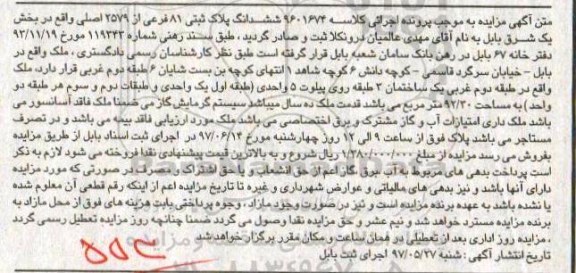 متن آگهی مزایده به موجب پرونده اجرائی کلاسه ۹۶۰۱۶۷۴ ششدانگ پلاک ثبتی ۸۱ فرعی از ۲۵۷۹ اصلی واقع در بخش
یک شرق بابل به نام آقای مهدی عالمیان درونکلا ثبت و صادر گردید ، طبق سند رهنی شماره ۱۱۹۳۴۳ مورخ ۹۳/۱۱/۱۹
دفتر خانه ۶۷ بابل در رهن بانک سامان شعبه بابل قرار گرفته است طبق نظر کارشناسان رسمی دادگستری ، ملک واقع در
بابل - خیابان سرگرد قاسمی - کوچه دانش ۶ کوچه شاهد ۱ انتهای کوچه بن بست شایان ۶ طبقه دوم غربی قرار دارد، ملک
واقع در طبقه دوم غربی یک ساختمان ۳ طبقه روی پیلوت ۵ واحدی (طبقه اول یک واحدی و طبقات دوم و سوم هر طبقه دو
واحد ) به مساحت ۹۲/۲۰ متر مربع می باشد قدمت ملک ده سال میباشد سیستم گرمایش گاز می ضمنا ملک فاقد آسانسور می
باشد ملک داری امتیازات آب و گاز مشترک و برق اختصاصی می باشد ملک مورد ارزیابی فاقد بیمه می باشد و در تصرف
مستاجر می باشد پلاک فوق از ساعت ۹ الی ۱۲ روز چهارشنبه مورخ ۹۷/۰۶/۱۴ در اجرای ثبت اسناد بابل از طریق مزایده
بفروش می رسد مزایده از مبلغ ۱/۳۸۰/۰۰۰/۰۰۰ ریال شروع و به بالاترین قیمت پیشنهادی نقدا فروخته می شود لازم به ذکر
است پرداخت بدهی های مربوط به آب برق گاز اعم از حق انشعاب و یا حق اشتراک و مصرف در صورتی که مورد مزایده
دارای آنها باشد و نیز بدهی های مالیاتی و عوارض شهرداری و غیره تا تاریخ مزایده اعم از اینکه رقم قطعی آن معلوم شده
یا نشده باشد به عهده برنده مزایده است و نیز در صورت وجود مازاد ، وجوه پرداختی بابت هزینه های فوق از محل مازاد به
برنده مزایده مسترد خواهد شد و نیم عشر و حق مزایده نقدا وصول می گردد ضمنا چنانچه روز مزایده تعطیل رسمی گردد
، مزایده روز اداری بعد از تعطیلی در همان ساعت و مکان مقرر برگزار خواهد شد
تاریخ انتشار آگهی : شنبه ۹۷/۰۵/۲۷ اجرای ثبت بابل